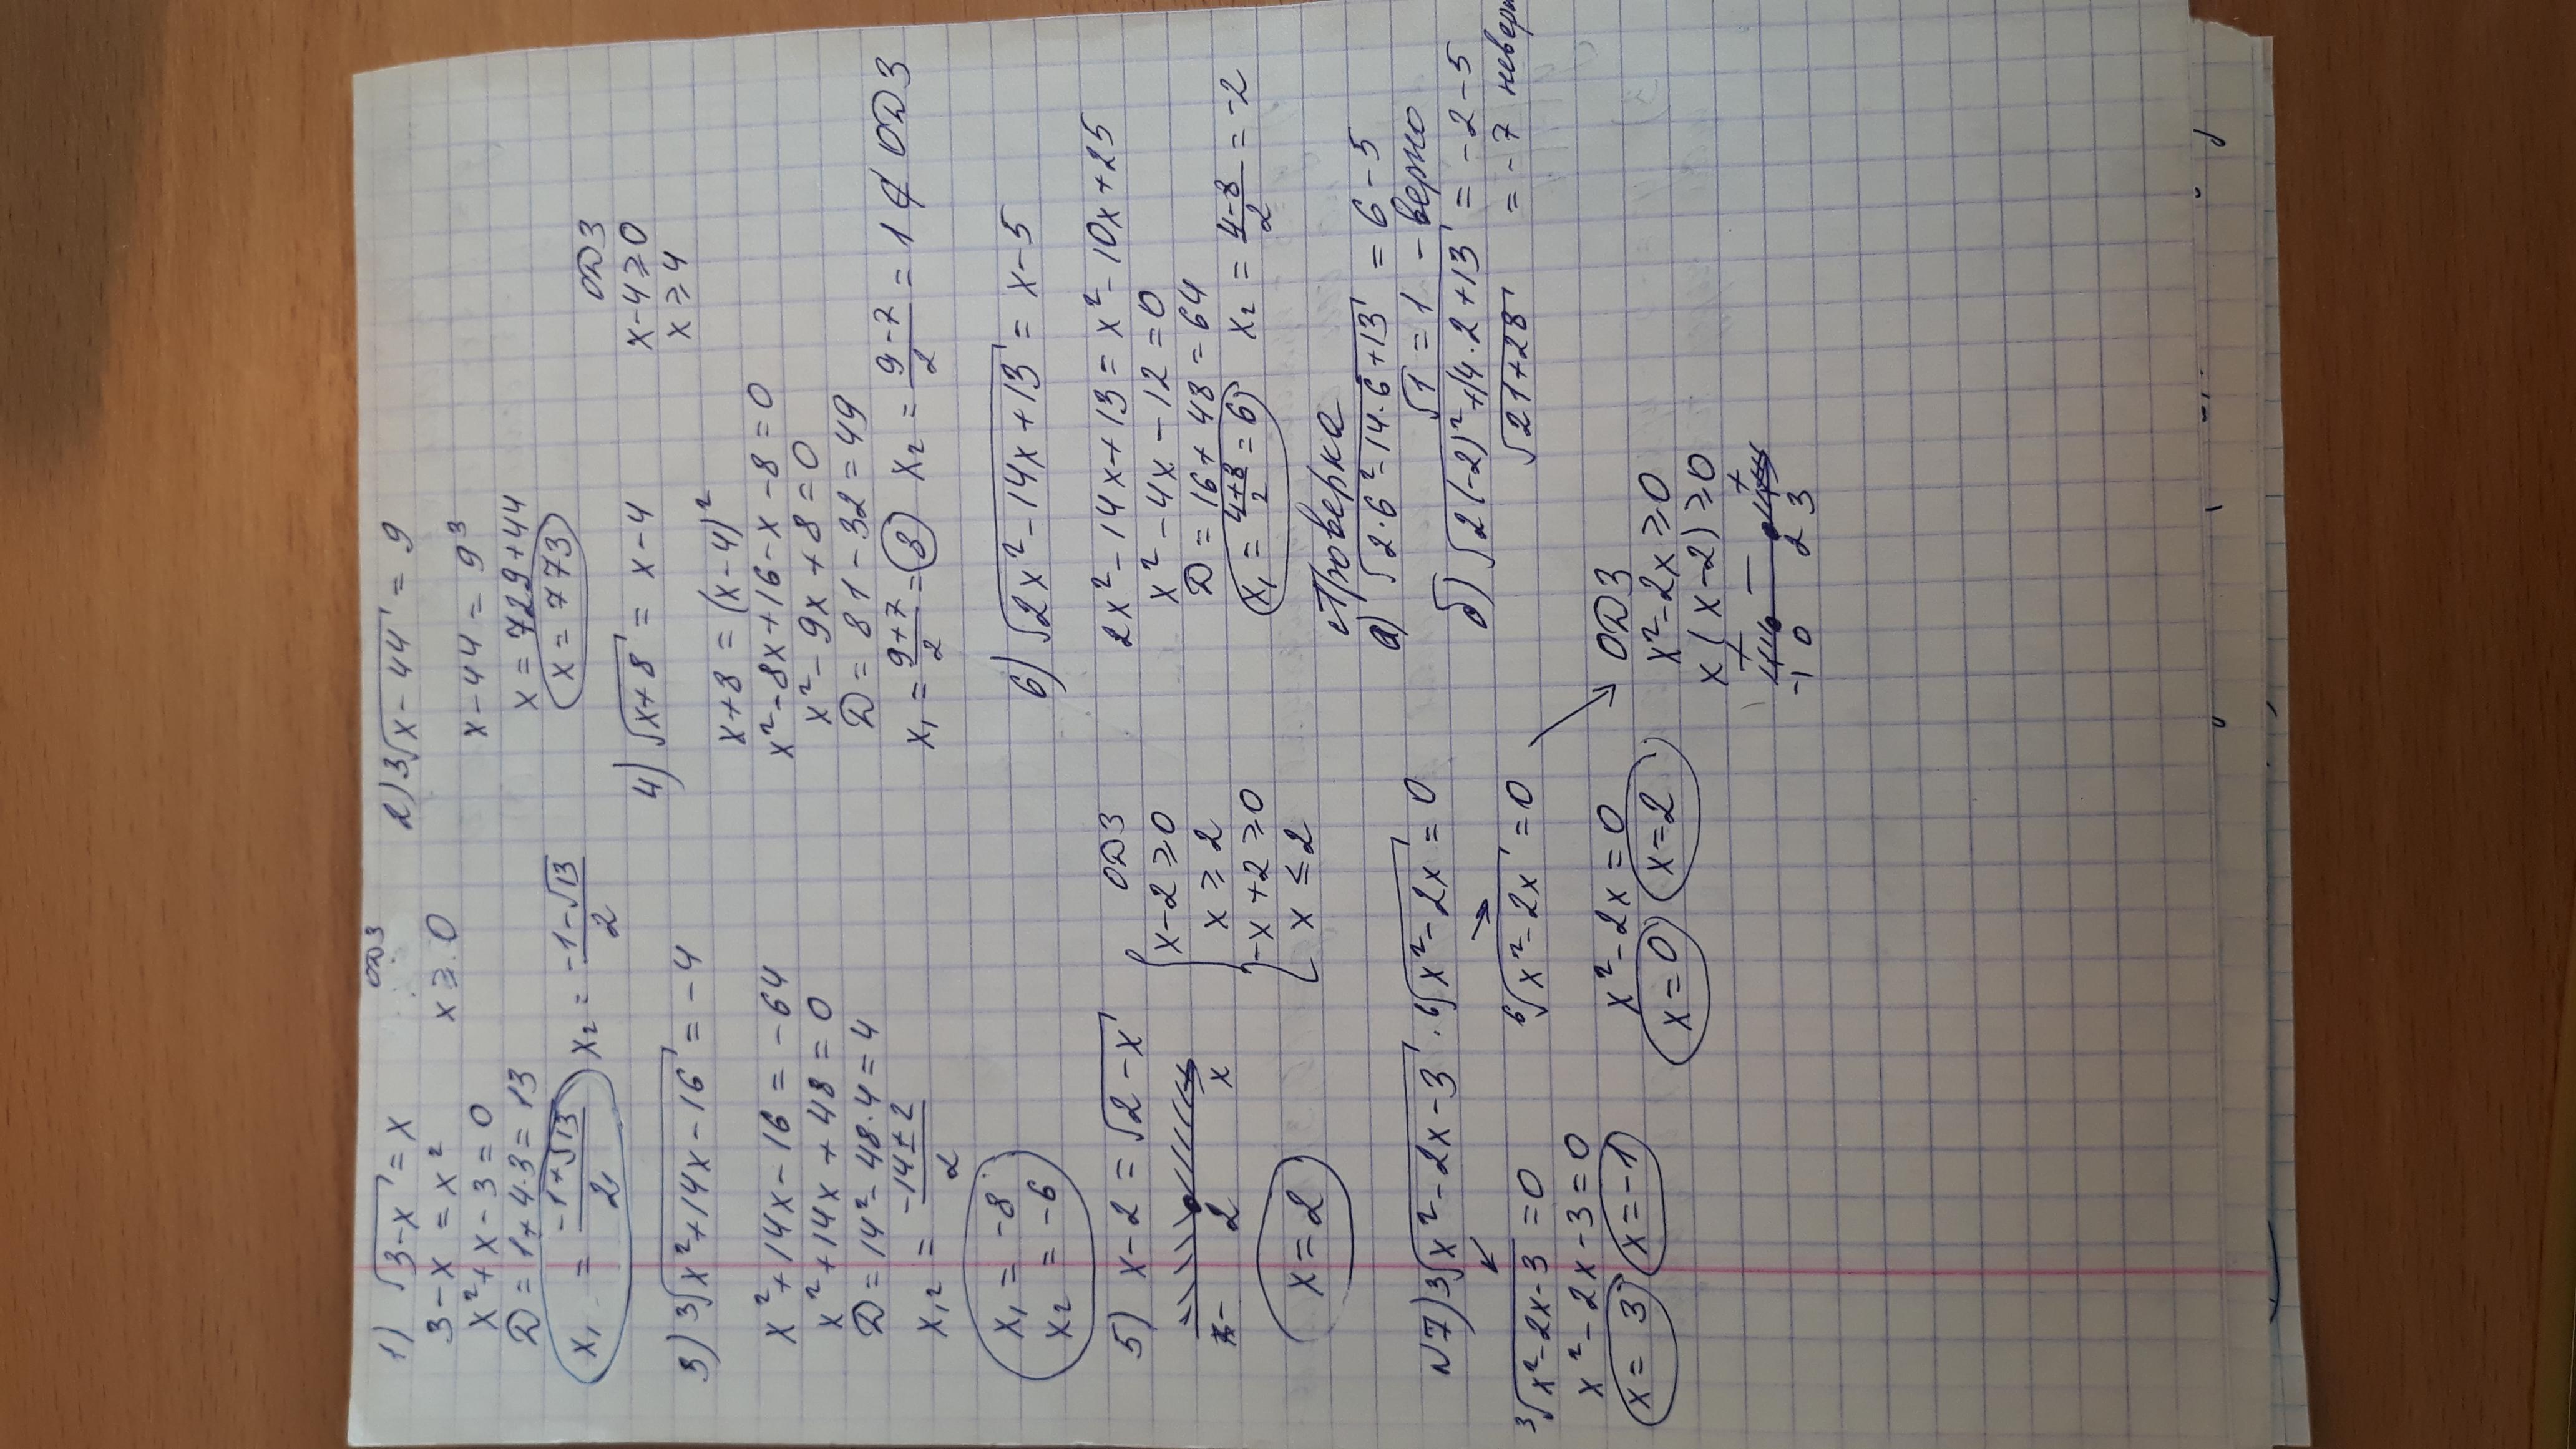 1) √3-x = x
ОДЗ
3-x = x²
x ≥ 0
x²+x-3=0
D=1+4·3=13
x₁ = (-1+√13)/2 x₂ = (-1-√13)/2
2) ³√x-44 = 9
x-44 = 9³
x = 729+44
x = 773
3) ³√x²+14x-16 = -4
x²+14x-16 = -64
x²+14x+48=0
D=14²-48·4=4
x₁,₂ = (-14±2)/2
x₁ = -8
x₂ = -6
4) √x+8 = x-4
ОДЗ
x-4≥0
x≥4
x+8 = (x-4)²
x²-8x+16-x-8=0
x²-9x+8=0
D=81-32=49
x₁ = (9+7)/2 = 8 x₂ = (9-7)/2 = 1 ∉ ОДЗ
5) x-2 = √2-x
ОДЗ
x-2≥0
x≥2
-x+2≥0
x≤2
2 x
x=2
6) √2x²-14x+13 = x-5
2x²-14x+13 = x²-10x+25
x²-4x-12=0
D=16+48=64
x₁ = (4+8)/2 = 6 x₂ = (4-8)/2 = -2
Проверка
а) √2·6²-14·6+13 = 6-5
√1 = 1 - верно
б) √2(-2)²+14·2+13 = -2-5
√21+28 = -7
N7) ³√x²-2x-3 · ⁶√x²-2x = 0
³√x²-2x-3 = 0
x²-2x-3=0
x=3 x=-1
⁶√x²-2x = 0
x²-2x=0
x=0 x=2
ОДЗ
x²-2x≥0
x(x-2)≥0
+ - +
-1 0 2 3